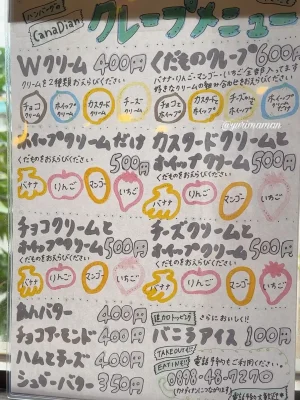 ハンバーグの
CanaDian
クレープメニュー
Wクリーム 400円
クリームを2種類おえらびください
チョコクリーム ホイップクリーム カスタードクリーム チーズクリーム
くだものクレープ 600円
バナナ・りんご・マンゴー・いちご 全部入ってます
好きなクリームの組み合わせをおえらびください
チョコとホイップ カスタードとホイップ チーズとホイップ
ホイップクリームだけ
くだものをおえらびください
500円
バナナ りんご マンゴー いちご
カスタードクリームと
ホイップクリーム 500円
くだものをおえらびください
バナナ りんご マンゴー いちご
チョコクリームと
ホイップクリーム 500円
くだものをおえらびください
バナナ りんご マンゴー いちご
チーズクリームと
ホイップクリーム 500円
くだものをおえらびください
バナナ りんご マンゴー いちご
あんバター 400円
チョコアーモンド 400円
ハムとチーズ 400円
シュガーバター 350円
追加トッピング さらにおいしく!!
バニラアイス 100円
TAKEOUTも!!
EATINも!!
電話予約もご利用ください。
0898-48-7270